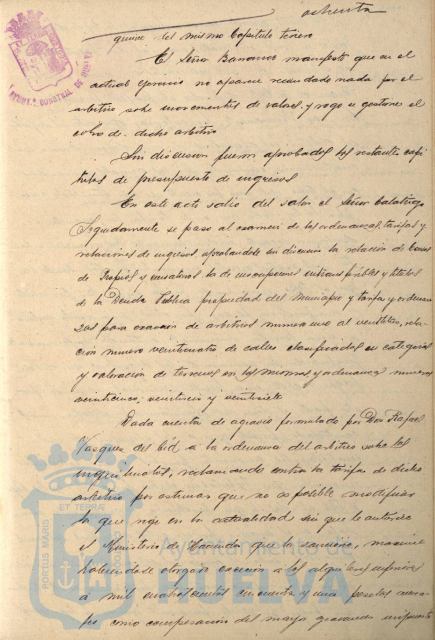 ochenta
quince del mismo Capitulo tercero
El Señor Barrancos manifestó que en el
actual ejercicio no aparece recaudado nada por el
arbitrio sobre incrementos de valores, y rogo se gestione el
cobro de dicho arbitrio
Sin discusion fueron aprobados los restantes capi
tulos de presupuesto de ingresos
En este acto salió del salon el Señor Calatrigo
Seguidamente se paso al examen de las ordenanzas, tarifas y
relaciones de ingresos, aprobandose sin discusion la relación de bienes
de Propios y la de inscripciones intransferibles y titulos
de la Deuda Publica propiedad del Municipio y tarifas y ordenan
zas para exaccion de arbitrios numero uno al veintitres, rela
ción numero veinticuatro de calles clasificadas en categorias
y valoración de terrenos en las mismas y ordenanzas numeros
veinticinco, veintiseis y veintisiete
Dada cuenta de agravio formulado por Don Rafael
Vazquez del Cid a la ordenanza del arbitrio sobre los
inquilinatos, reclamando contra la tarifa de dicho
arbitrio por estimar que no es posible modificar
la que rige en la actualidad sin que lo autorice
el Ministerio de Hacienda que la sanciono, maxime
habiendose otorgado exención a los alquileres inferiores
a mil cuatrocientas cincuenta y una pesetas
como compensación del mayor gravamen impuesto
PORTUS MARIS ET TERRAE
Ayuntamiento de
HUELVA